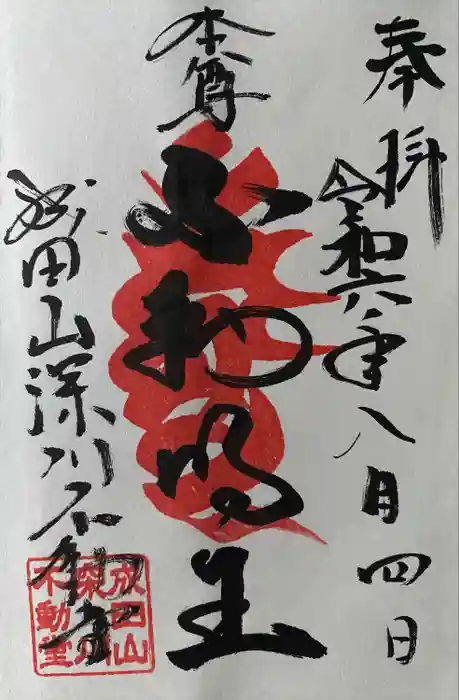 奉拝
令和六年八月四日
本尊
不動明王
成田山深川不動堂
成田山
深川
不動堂